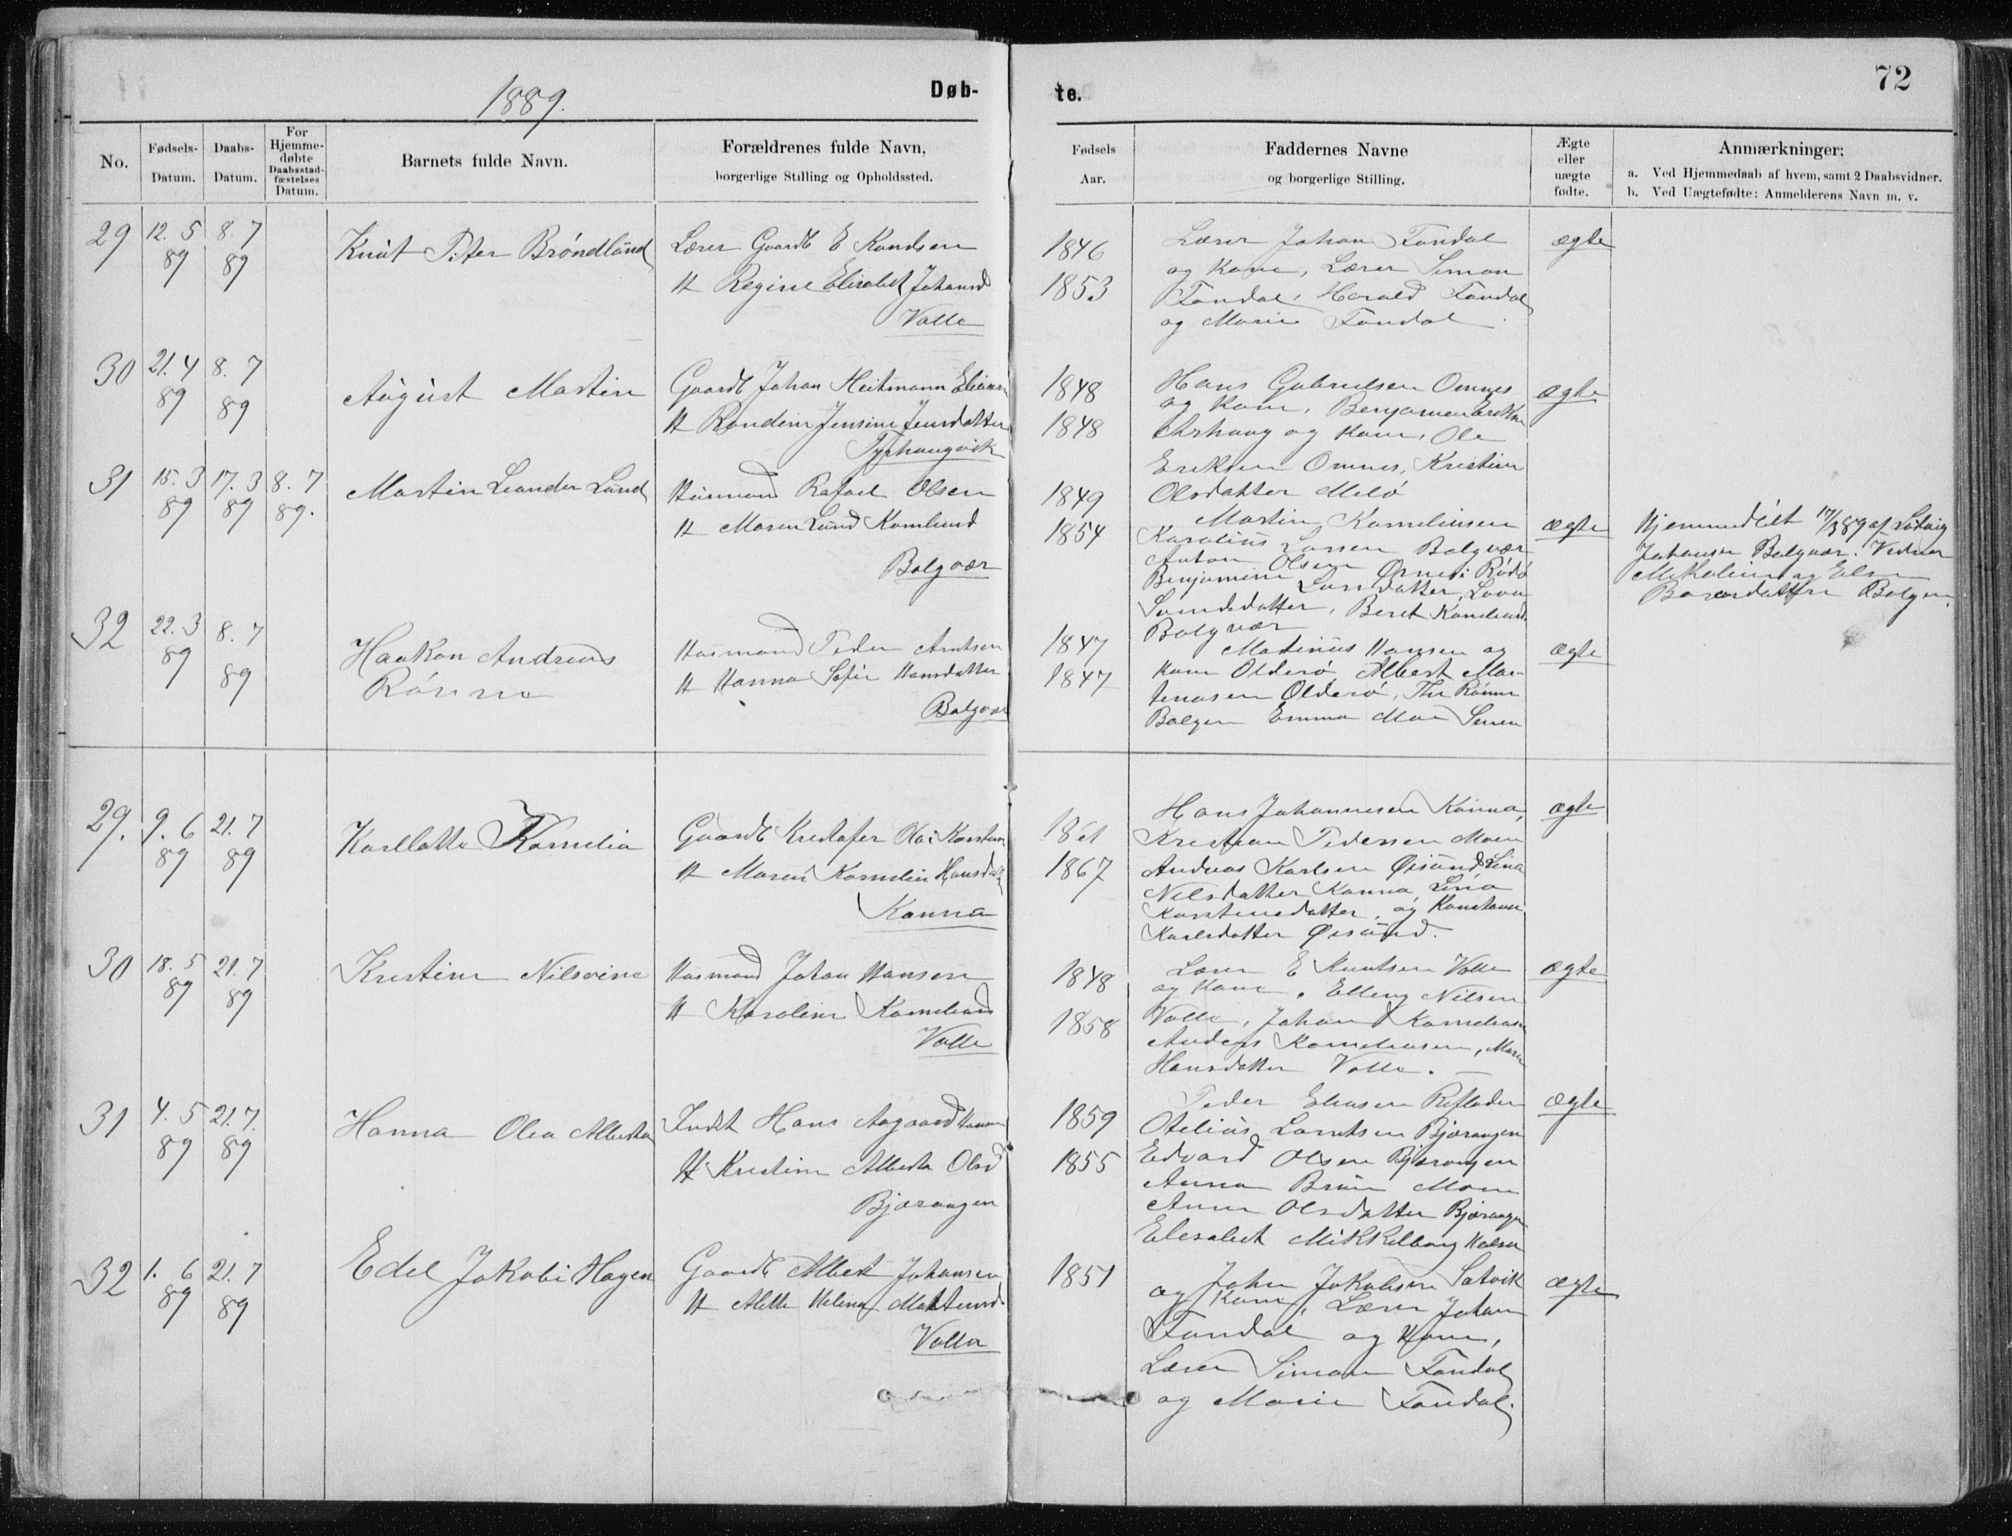 1889.
Døb-
te.
72
No.
Fødsels-
Datum.
Daabs-
Datum.
For
Hjemme-
døbte
Daabsstad-
fæstelses
Datum.
Barnets fulde Navn.
Forældrenes fulde Navn,
borgerlige Stilling og Opholdssted.
Fødsels
Aar.
Faddernes Navne
og borgerlige Stilling.
Ægte
eller
uægte
fødte.
Anmærkninger;
a. Ved Hjemmedaab af hvem, samt 2 Daabsvidner.
b. Ved Uægtefødte: Anmelderens Navn m. v.
29
12. 5
89
8. 7
89
Knut Peter Brøndlund
Lærer Gaardb E Knudsen
H Regine Elisabet Johansd
Valla
1846
1853
Lærer Johan Tøndal
og Kone, Lærer Simon
Tøndal, Harald Tøndal
og Marie Tøndal
ægte
30
21. 4
89
8. 7
89
August Martin
Gaardb Johan Heitmann
H Jensine Jensdatter
1848
1848
Hans Gabrielsen Omnes
og Kone, Benjamin
og Kone, Ole
Eriksen Omnes,
Olsdatter Melø
ægte
31
15. 3
89
17. 3
89
8. 7
89.
Martin Leander Lund
Husmand Rafael Olsen
H Maren Lund
Bolgvær
1849
1854
Martin Korneliusen
Karolius Larsen Bolgvær
Anton Olsen Ørnes i Rødø
Benjamine Larsdatter,
Beret
Bolgvær
ægte
Hjemmedøbt 17/3 89 af Ludvig
Johansen Bolgvær. Vidner
og Else
32
22. 3
89
8. 7
89
Haakon Andreas
Rønne
Husmand Peder Arntsen
H Hanna Sofie Hansdatter
Bolgvær
1847
1847
Martinus Hansen og
Kone Olderø, Albert Mar-
Olderø, Rønne
Bolgen Emma
ægte
29.
9. 6
89
21. 7
89
Karllotta Kornelia
Gaardb Kristofer Kai
H Maren Kornelia Hansd
Kanna
1861
1867
Hans Johannesen Kanna,
Kristian Pedersen Moen
Andreas Karlsen Øisund Lina
Nilsdatter Kanna, Lina
Karstensdatter, og
Karlsdatter Øisund.
ægte
30
18. 5
89
21. 7
89
Kristine Nilsvine
Husmand Johan Hansen
H Karoline
Valla
1848
1858
Lærer E Knutsen Valla
og Kone, Elling Nilsen
Valla, Johan
Anders Korneliusen,
Hansdatter Valla.
ægte
31
4. 5
89
21. 7.
89
Hanna Olea Alberta
Indst Hans Aagaard
H Kristine Alberta Olsd
Bjærangen
1859
1855
Peder Eliasen
Otelius Bjærangen
Edvard Olsen Bjærangen
Anna Bruun
Anna Olsdatter Bjærangen
Elesabet Mikkelborg
ægte
32
1. 6
89
21. 7
89
Edel Jakobi Hagen
Gaardb Albert Johansen
H Helena
Valla
1851
John Jakobsen Satvik
og Kone, Lærer Johan
Tøndal og Kone,
Lærer Simon Tøndal
og Marie Tøndal.
ægte